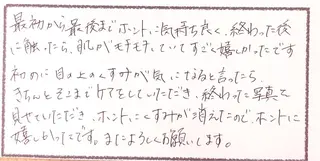 最初から最後までホントに気持ち良く、終わった後
に触ったら、肌がモチモチしていてすごく嬉しかったです
初めに目の上のくすみが気になると言ったら、
きちんとそこまでケアをしていただき、終わった写真を
見せていただき、ホントにくすみが消えたので、ホントに
嬉しかったです。またよろしくお願いします。